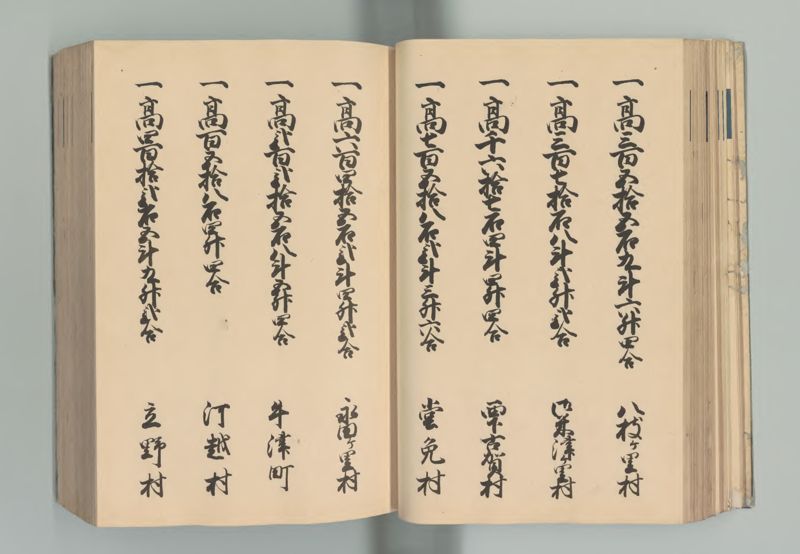 一高三百五拾五石九斗六升四合 八枝ヶ里村
一高三百七拾石八斗弐升弐合 津里村
一高千六拾七石四斗四升四合 古賀村
一高七百五拾八石弐斗三升六合 堂免村
一高六百四拾五石弐斗四升弐合 永田ヶ里村
一高弐百弐拾五石八斗五升四合 牛津町
一高百五拾八石四升四合 河越村
一高四百拾弐石五斗九升弐合 立野村